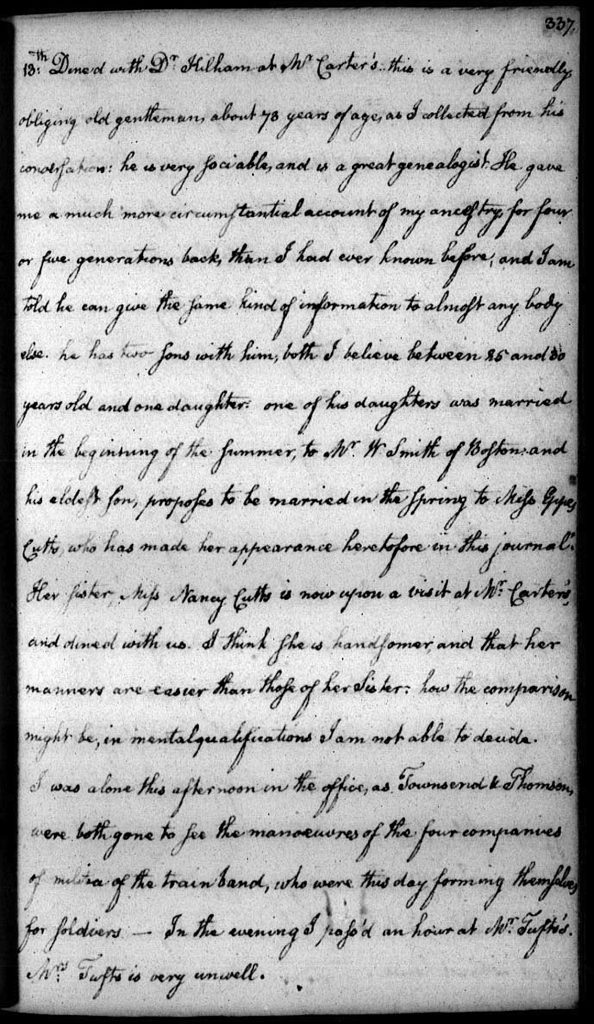 337.
13:th Dined with Dr. Kilham at Mr. Carter's: this is a very friendly,
obliging old gentleman, about 73 years of age, as I collected from his
conversation: he is very sociable, and is a great genealogist. He gave
me a much more circumstantial account of my ancestry, for four
or five generations back, than I had ever known before, and I am
told he can give the same kind of information to almost any body
else. he has two sons with him, both I believe between 25 and 30
years old and one daughter: one of his daughters was married
in the beginning of the summer, to Mr. W Smith of Boston: and
his eldest son, proposes to be married in the spring to Miss Eppes
Cutts, who has made her appearance heretofore in this journal.
Her sister, Miss Nancy Cutts is now upon a visit at Mr. Carter's,
and dined with us. I think she is handsomer, and that her
manners are easier than those of her Sister: how the comparison
might be, in mental qualifications I am not able to decide.
I was alone this afternoon in the office, as Townsend & Thomson,
were both gone to see the manoeuvres of the four companies
of militia of the train band, who were this day forming themselves
for soldiers — In the evening I pass'd an hour at Mr. Tufts's.
Mrs. Tufts is very unwell.